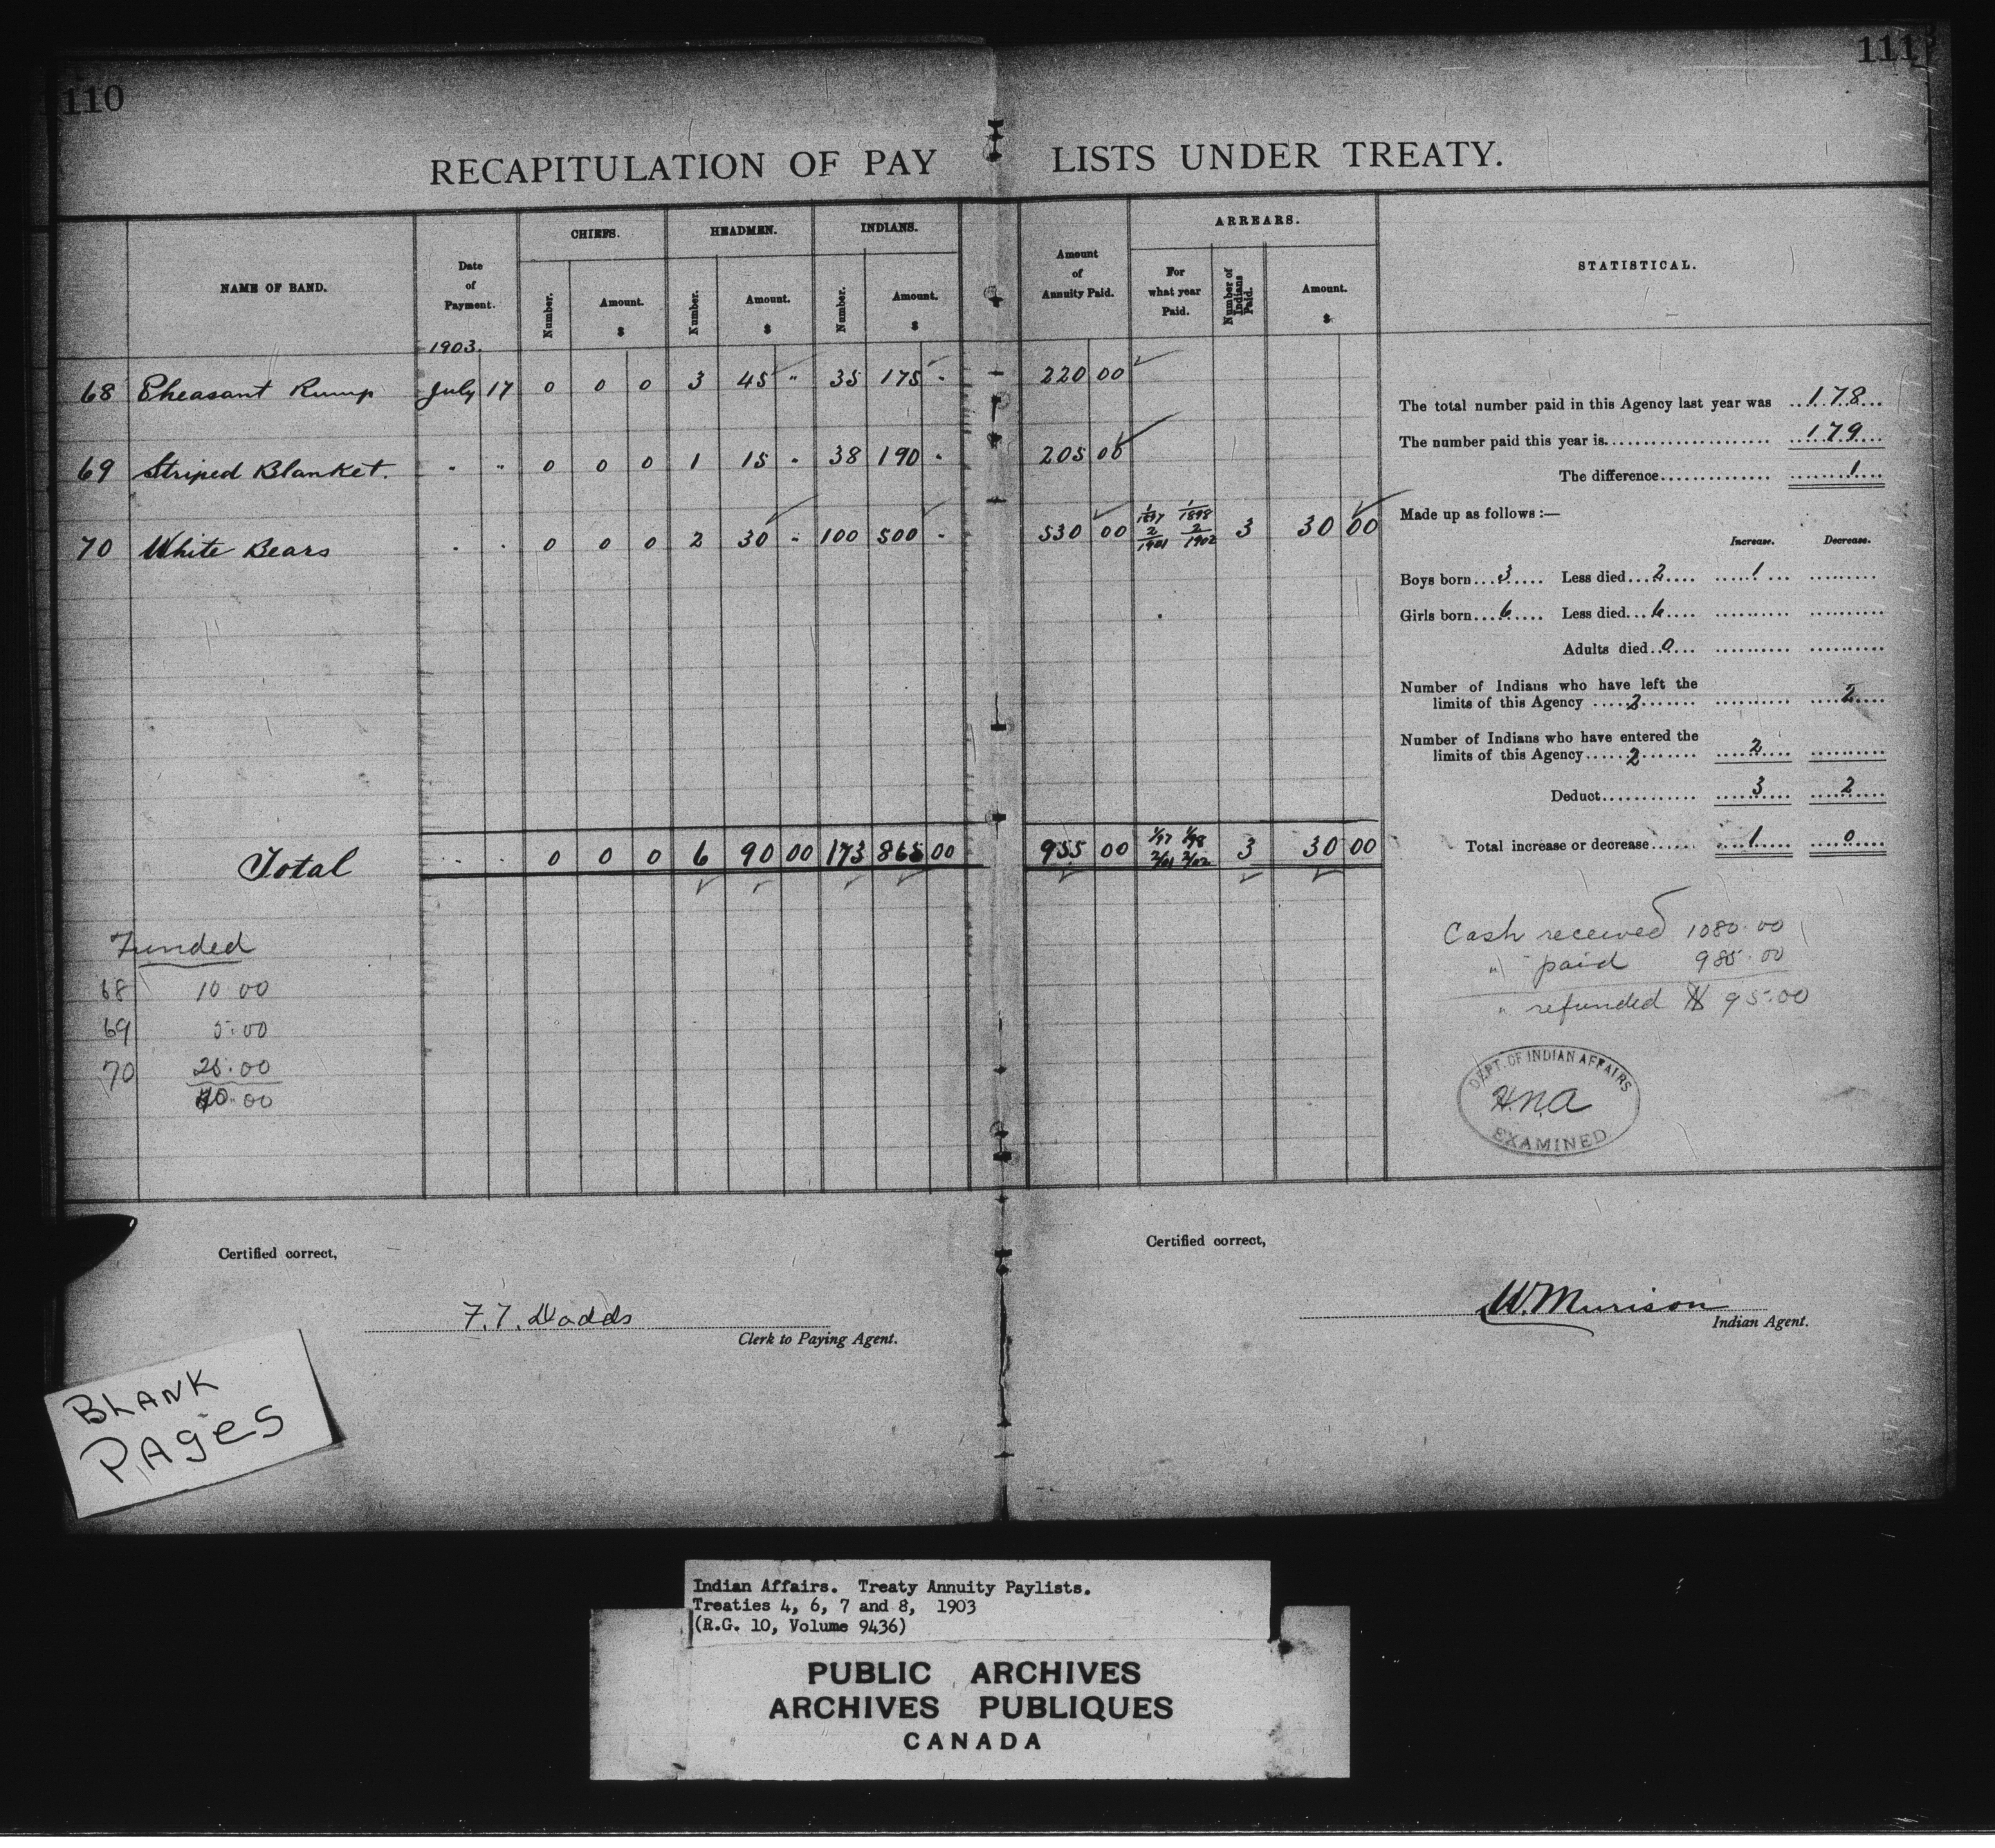 110
111
RECAPITULATION OF PAY LISTS UNDER TREATY.
NAME OF BAND.
Date of Payment.
CHIEFS.
Number.
Amount.
$
HEADMEN.
Number.
Amount.
$
INDIANS.
Number.
Amount.
$
Amount of Annuity Paid.
ARREARS.
For what year Paid.
Number of Indians Paid.
Amount.
$
STATISTICAL.
1903.
68 Pheasant Rump July 17 0 0 0 3 45 " 35 175 " 220 00
69 Striped Blanket. " " 0 0 0 1 15 " 38 190 " 205 00
70 White Bears " " 0 0 0 2 30 " 100 500 " 530 00 1/1897 1/1898 2/1901 2/1902 3 30 00
Total " " 0 0 0 6 90 00 173 865 00 955 00 1/97 1/98 2/01 2/02 3 30 00
The total number paid in this Agency last year was 178
The number paid this year is 179
The difference 1
Made up as follows :—
Increase. Decrease.
Boys born 3 Less died 2 1
Girls born 6 Less died 6
Adults died 0
Number of Indians who have left the
limits of this Agency 2 2
Number of Indians who have entered the
limits of this Agency 2 2
Deduct 3 2
Total increase or decrease 1 0
Funded
68 10 00
69 5.00
70 25.00
40.00
Cash received 1080.00
" paid 985.00
" refunded $ 95.00
DEPT. OF INDIAN AFFAIRS
H.N.A
EXAMINED
Certified correct,
F.T. Dodds
Clerk to Paying Agent.
Certified correct,
W. Murison
Indian Agent.
BLANK
PAGES
Indian Affairs. Treaty Annuity Paylists.
Treaties 4, 6, 7 and 8, 1903
(R.G. 10, Volume 9436)
PUBLIC ARCHIVES
ARCHIVES PUBLIQUES
CANADA